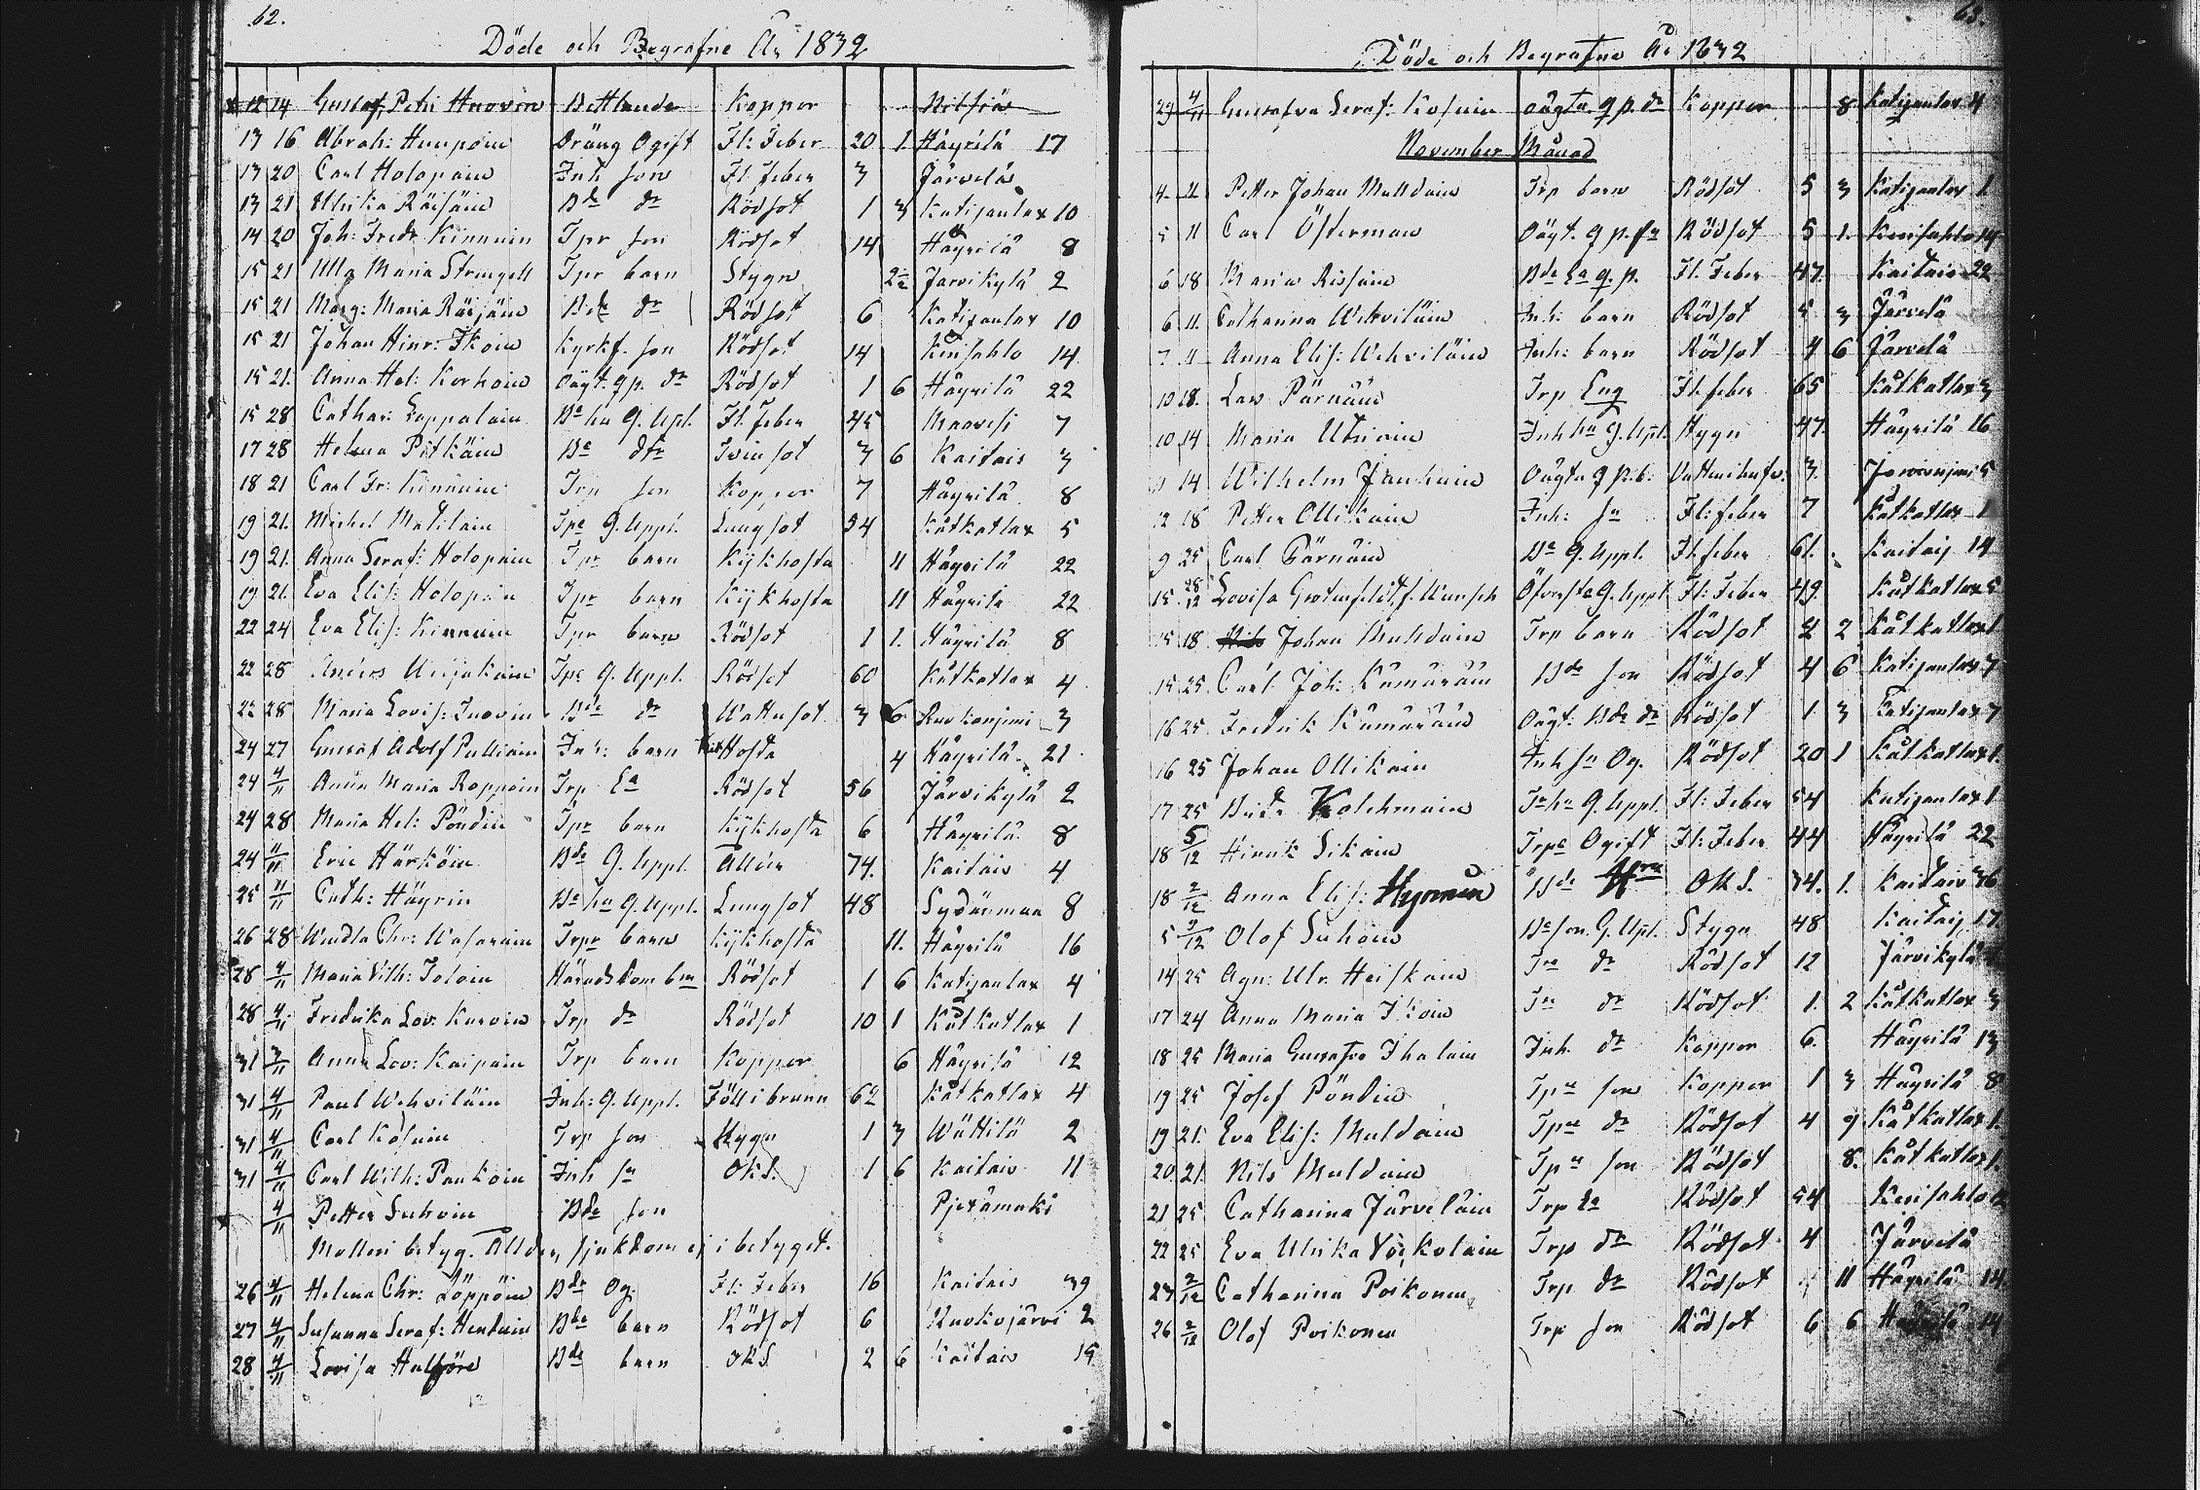 62.
Döde och Begrafne År 1832
12 14 Gustaf Petri Knovin Bettlande Koppor Nilsiä
13 16 Abrah: Huupöin Dräng Ogift Fl: Feber 20 1 Häyrilä 17
13 20 Carl Holopain Inh son Fl. feber 3 Järvelä
13 21 Ulrika Räisäin Bde dr Rödsot 1 3 Katisanlax 10
14 20 Joh: Fredr Kinnuin Tpr son Rödsot 14 Häyrilä 8
15 21 Ulla Maria Strengell Tpr barn Stygn Järvikylä 2
15 21 Marg: Maria Räisäin Bde dr Rödsot 6 Katisanlax 10
15 21 Johan Hinr: Ikoin Kyrkf. son Rödsot 14 Kinsahlo 14
15 21. Anna Hel: Korhoin oägt. qp. dr Rödsot 1 6 Häyrilä 22
15 28 Cathar: Lappalain Be hu G. Upl. Fl. feber 45 Maavesi 7
17 28 Helena Pitkäin Be dtr Tvinsot 3 6 Kaitais 3
18 21 Carl Fr: Kinnuin Trp son Koppor 7 Häyrilä 8
19 21. Michel Matilain Tpe G. Uppl. Lungsot 54 Kåtkatlax 5
19 21. Anna Seraf: Holopain Tpr barn Kijkhosta 11 Häyrilä 22
19 21. Eva Elis: Holopain Tpr barn Kijkhosta 11 Häyrilä 22
22 24 Eva Elis: Kinnuin Tpr barn Rödsot 1 1. Häyrilä 8
22 28 Anders Tpe G. Uppl. Rödsot 60 Kåtkatlax 4
22 28 Maria Lovis: Inovin Bde dr Wattusot 3 6 3
24 27 Gustaf Adolf Pulliain Inh: barn Hosta 4 Häyrilä 21
24 4/11 Anna Maria Roppoin Trp Ea Rödsot 56 Järvikylä 2
24 28 Maria Hel: Pöndin Tpr barn Kijkhosta 6 Häyrilä 8
24 11/11 Eric Härköin Bde G. Uppl. Ålder 74. Kaitais 4
25 11/11 Cath: Häyrin Be hu G. Uppl. Lungsot 48 Sydänmaa 8
26 28 Wendla Chr: Wasarain Trpr barn Kijkhosta 11. Häyrilä 16
28 4/11 Maria Vilh: Toloin Häradsdom bn Rödsot 1 6 Katisanlax 4
28 4/11 Fredrika Lov: Karvin Trp dr Rödsot 10 1 Kåtkatlax 1
31 4/11 Anna Lov: Kaipain Trp barn Koppor 6 Häyrilä 12
31 4/11 Paul Wehviläin Inh: G. Uppl. Föll i brunn 62 Kåtkatlax 4
31 4/11 Carl Kosuin Trp son Stygn 1 3 Wättilä 2
31 4/11 Carl Wilh: Paukoin Inh sn Okd. 1 6 Kaitais 11
4/11 Petter Suhoin Bde son Pjexämäki
Mulleri betyg. Ålder, sjukdom ej i betyget.
26 4/11 Helena Chr: Löppöin Bde Og. Fl: Feber 16 Kaitais 39
27 4/11 Susanna Seraf: Hentuin Bde barn Rödsot 6 Ruokojärvi 2
28 4/11 Lovisa Bde barn Okd. 2 6 Kaitais 15
63.
Döde och Begrafne År 1832
29 4/11 Gustafva Seraf: Kosuin oägta qp. dr Koppor 8 Katisanlax 4
November Månad
4. 11. Petter Johan Mulldain Trp barn Rödsot 5 3 Katisanlax 1
5 11 Carl Österman Oägt. qp. sn Rödsot 5 1. Kinsahlo 14
6 18 Maria Rissain Bde Ea q. p. Fl. Feber 47. Kaitais 22
6 11. Catharina Wehviläin Inh: barn Rödsot 5 3 Järvelä
7 11 Anna Elis: Wehviläin Inh: barn Rödsot 4 6 Järvelä
10 18. Lars Pärnäin Trp Eng Fl. feber 65 Kåtkatlax 3
10 14 Maria Utriain Inh hu G. Upl. Stygn 47. Häyrilä 16
14 Wilhelm Jauhain Oägta qp. b. 3. 5
12 18 Petter Ollikain Inh: sn Fl: feber 7 Kåtkatlax 1
9 25 Carl Pärnäin Be G. Uppl. Fl. feber 61. Kaitais 14
15. 28/12 Lovisa Grotenfeldt f. Munsch Öfverste G. Uppl Fl: Feber 49. Kåtkatlax 5
15 18 Johan Muldain Trp barn Rödsot 2 2 Kåtkatlax 1
15 25. Carl Joh: Kämäräin Bde son Rödsot 4 6 Katisanlax 7
16 25 Fredrik Kämäräin Oägt: Bde dr Rödsot 1 3 Katisanlax 7
16 25 Johan Ollikain Inh sn Og. Rödsot 20 1 Kåtkatlax 1.
17 25 Brita Kolehmain Te hu G. Uppl. Fl: Feber 54 Katisanlax 1
18 5/12 Hinrik Sikain Trpe Ogift Fl: Feber 44 Häyrilä 22
18 2/12 Anna Elis: Hyvoinen Bde Okd. 74. 1. Kaitais 36
5 9/12 Olof Suhoin Be son G. Upl. Stygn 48 Kaitais 17
14 25 Agn: Ulr. Heiskain Tre dr Rödsot 12 Järvikylä
17 24 Anna Maria Ikoin Tre dr Rödsot 1. 2 Kåtkatlax 3
18 25 Maria Gustafva Ihalain Inh. dr Koppor 6. Häyrilä 13
19 25 Josef Pöndin Tpre son Koppor 1 3 Häyrilä 8
19 21. Eva Elis: Muldain Tpre dr Rödsot 4 9 Kåtkatlax 1.
20. 21. Nils Muldain Tpre son Rödsot 8. Kåtkatlax 1.
21 25 Catharina Järveläin Trp Ea Rödsot 54 Kinsahlo
22 25 Eva Ulrika Trp dr Rödsot 4 Järvelä
23 2/12 Catharina Poikonen Trp dr Rödsot 11 Häyrilä 14.
26 2/12 Olof Poikonen Trp son Rödsot 6 6 Häyrilä 14